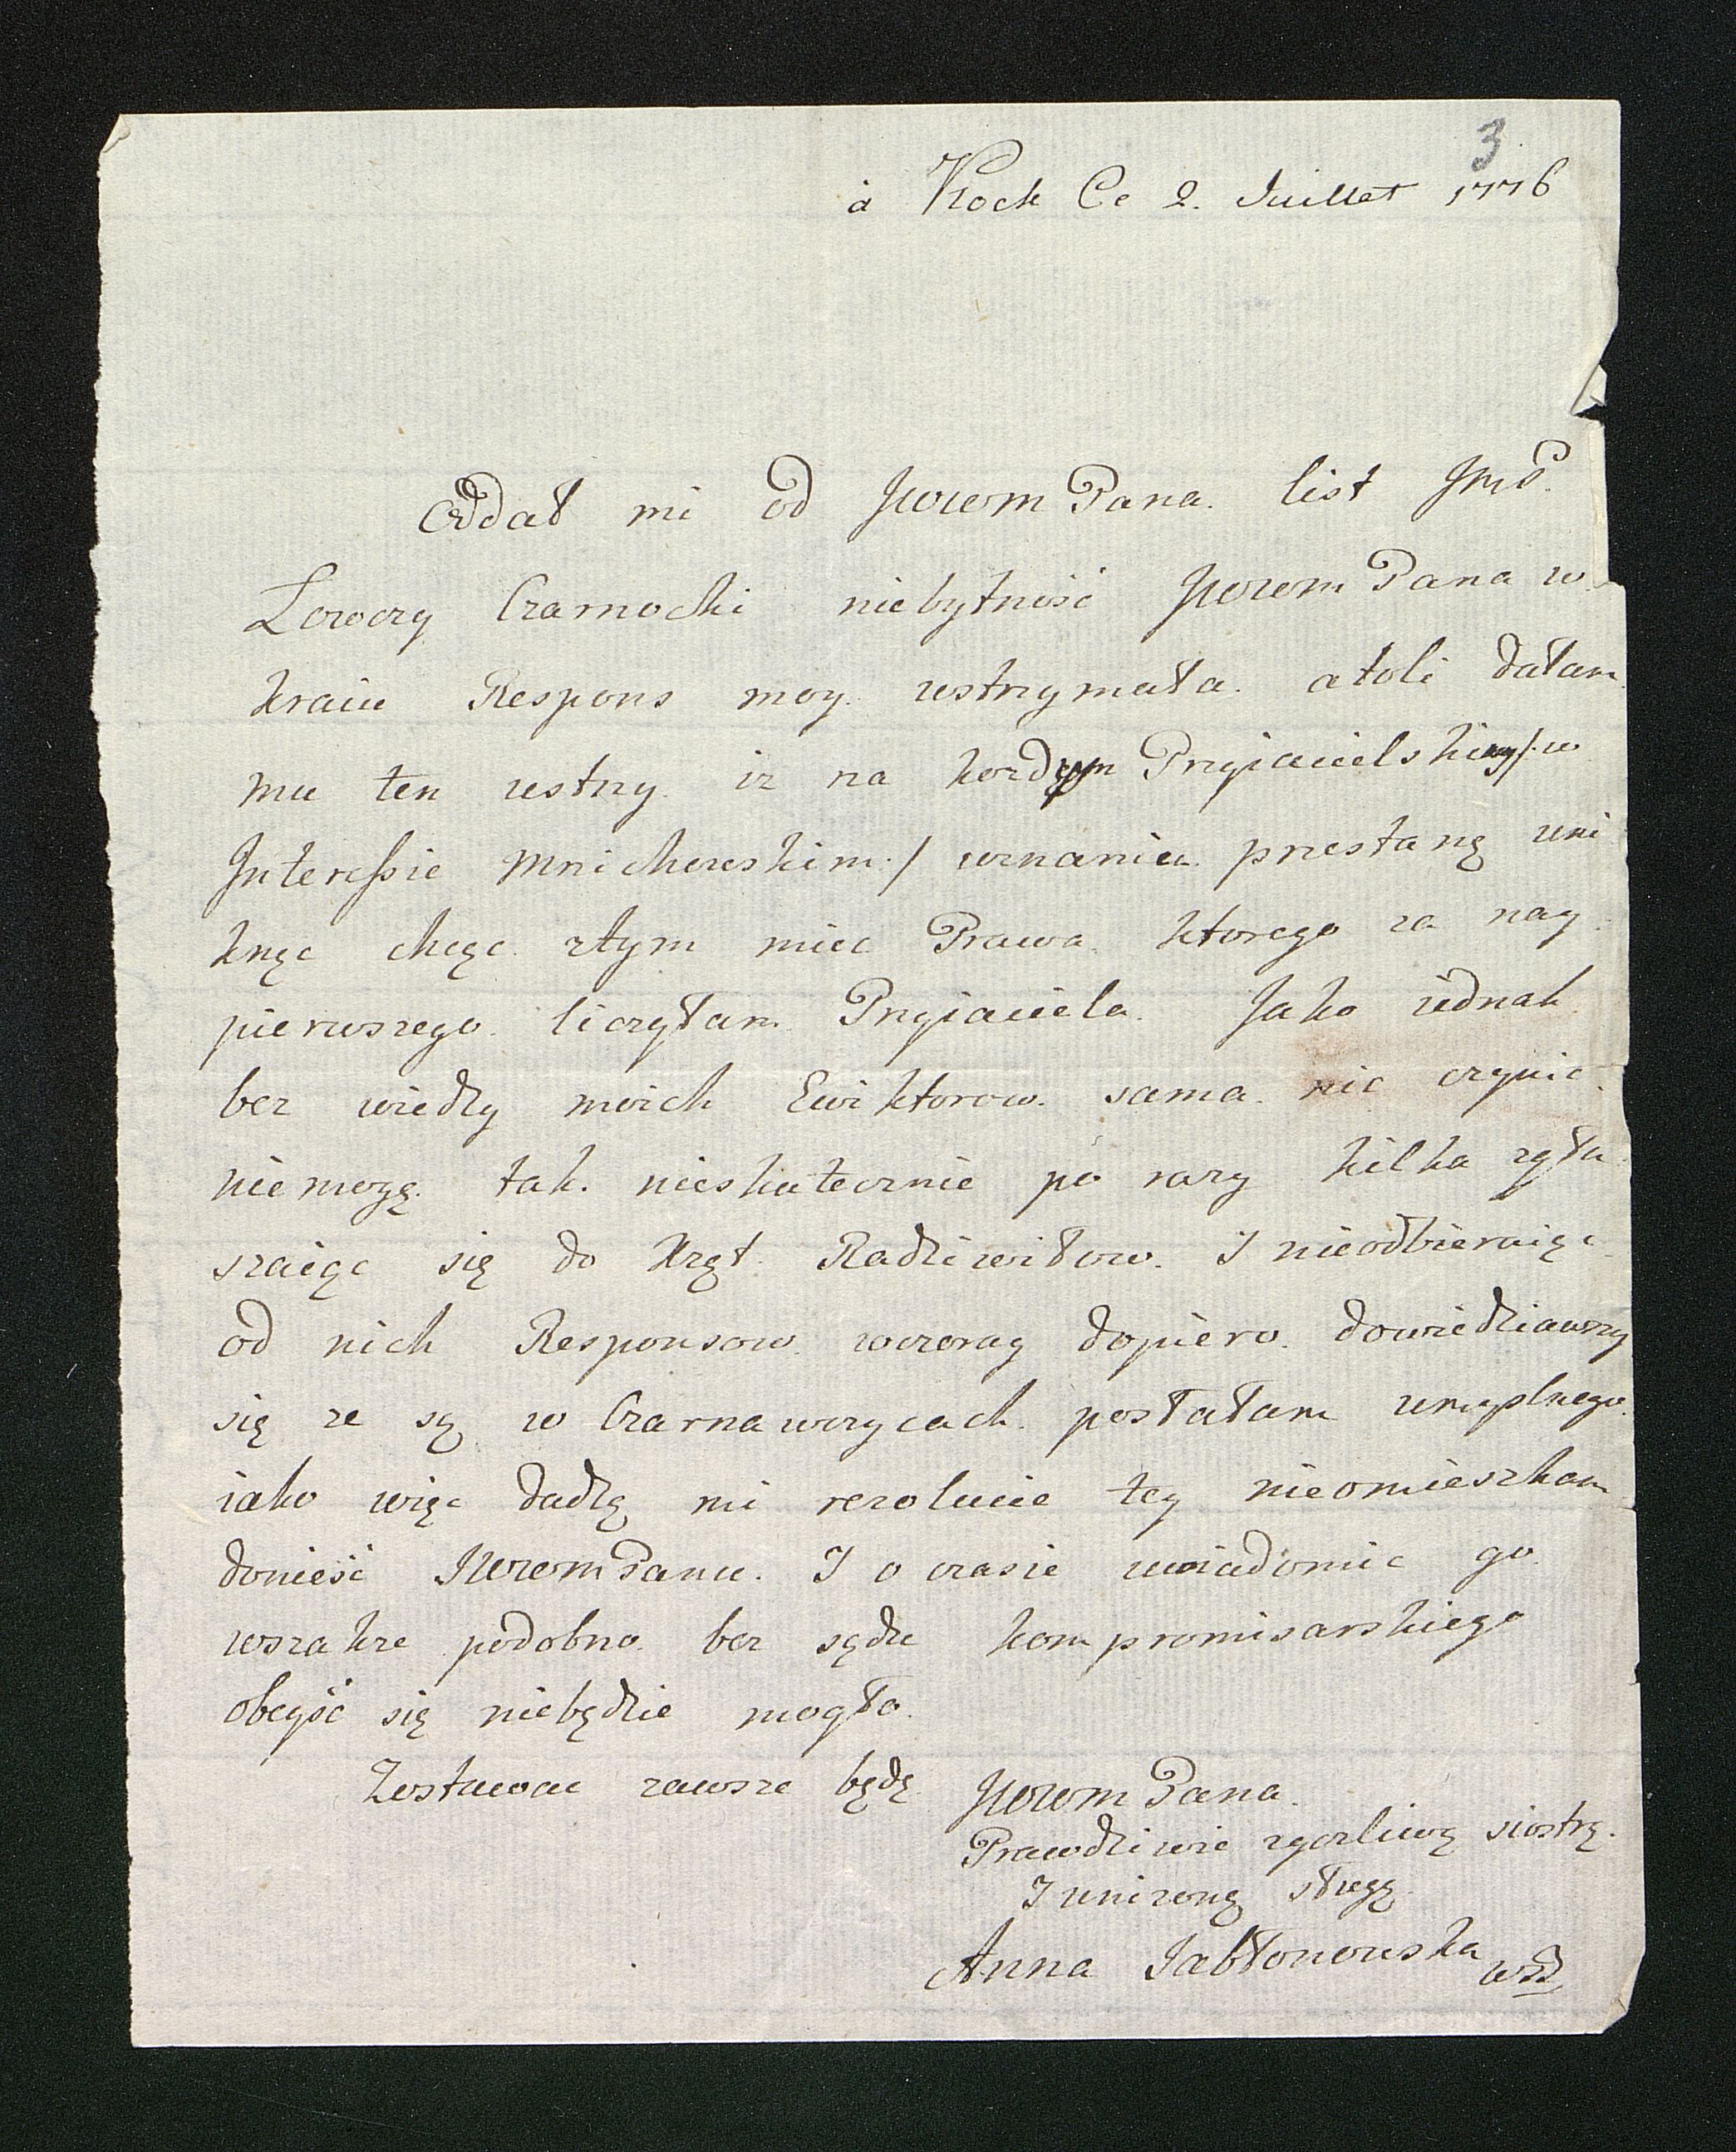 3
à Kock Ce 2. Juillet 1776
Oddał mi od JWWM Pana. list JmP.
Łowczy Czarnocki niebytność JWWM Pana w
kraiu Respons moy. wstrzymała. atoli dałam
mu ten ustny. iz na kozdym Przyiacielskim /: w
Interessie Mnichewskim :/ uznaniu. przestanę uni
knąc chcąc. ztym miec Prawa. ktorego za nay
pierwszego. liczyłam Przyiaciela. Jako iednak
bez wiedzy moich Ewiktorow. sama. nic czynic.
niemogę. tak. nieskutecznie po razy kilka zgła
szaiąc się do Xcząt Radziwiłow. I nieodbieraiąc
od nich Responsow. wczoray dopiero. dowiedziawszy
się ze są w Czarnawczycach. posłałam umyslnego.
iako więc dadzą mi rezolucie tey nieomieszkam
donieść JWWM Panu. I o czasie uwiadomic go
wszakze podobno bez sądu kompromisarskiego
obeyść się niebędzie mogło.
Zostawac zawsze będę JWWM Pana.
Prawdziwie zyczliwą siostrą.
I unizoną sługą
Anna Jabłonowska WBB